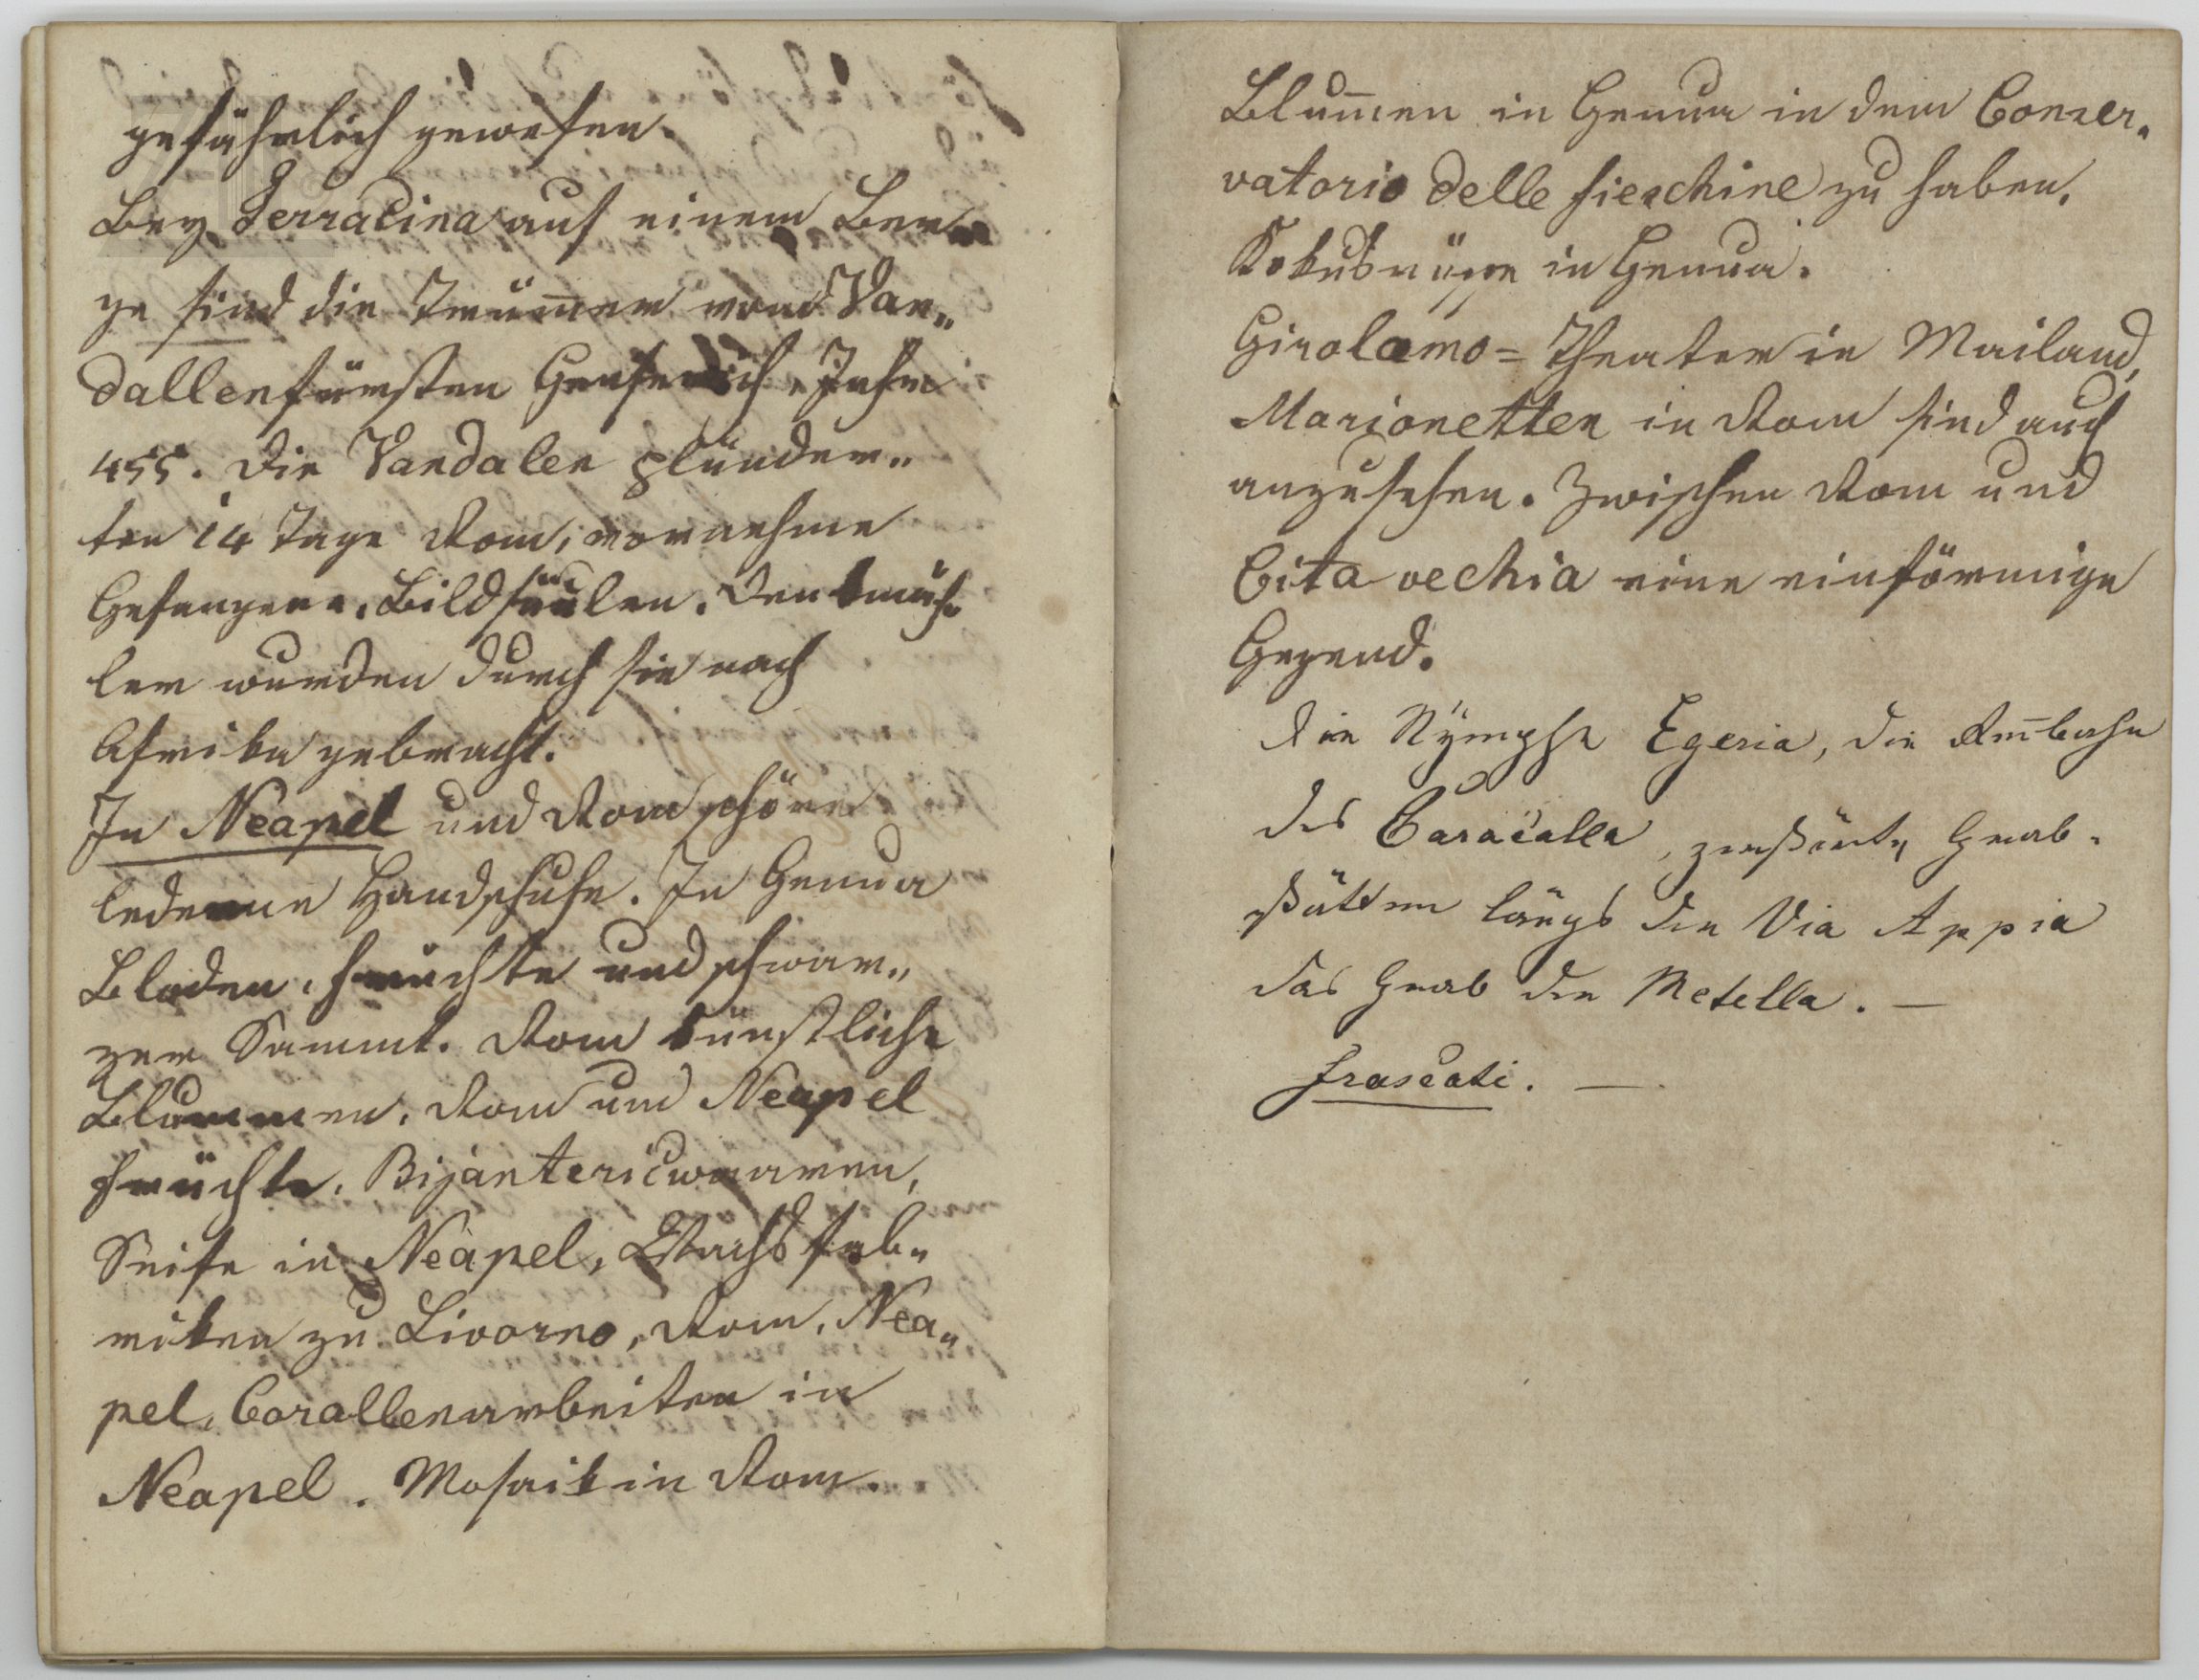 gefährlich gewesen.
Bey Terracina auf einem Ber=
ge sind die Trüm̅er vom Van„
dallenfürsten Genserich, Jahr
455. Die Vandalen plünder„
ten 14 Tage Rom, vornehme
Gefangene, Bildsäulen, Denkmäh„
ler wurden durch sie nach
Afrika gebracht.
In Neapel und Rom schöne
lederne Handschuhe. In Genua
Bloden, Früchte und schwar„
zer Sammt. Rom künstliche
Blummen, Rom und Neapel
Früchte, Bijanteriewaaren,
Seife in Neapel, Wachsfab„
riken zu Livorno, Rom, Nea„
pel, Corallenarbeiten in
Neapel. Mosaik in Rom.
Blum̅en in Genua in dem Conser„
vatorio delle fieschine zu haben.
Kokusnüße in Genua.
Girolamo=Theater in Mailand,
Marionetten in Rom sind auch
anzusehen. Zwischen Rom und
Cita vechia eine einförmige
Gegend.
Die Nÿmphe Egeria, die Ren̅bahn
des Caracalla, zerstörte Grab-
stätten längs der Via Appia
das Grab der Metella. —
frascati. —